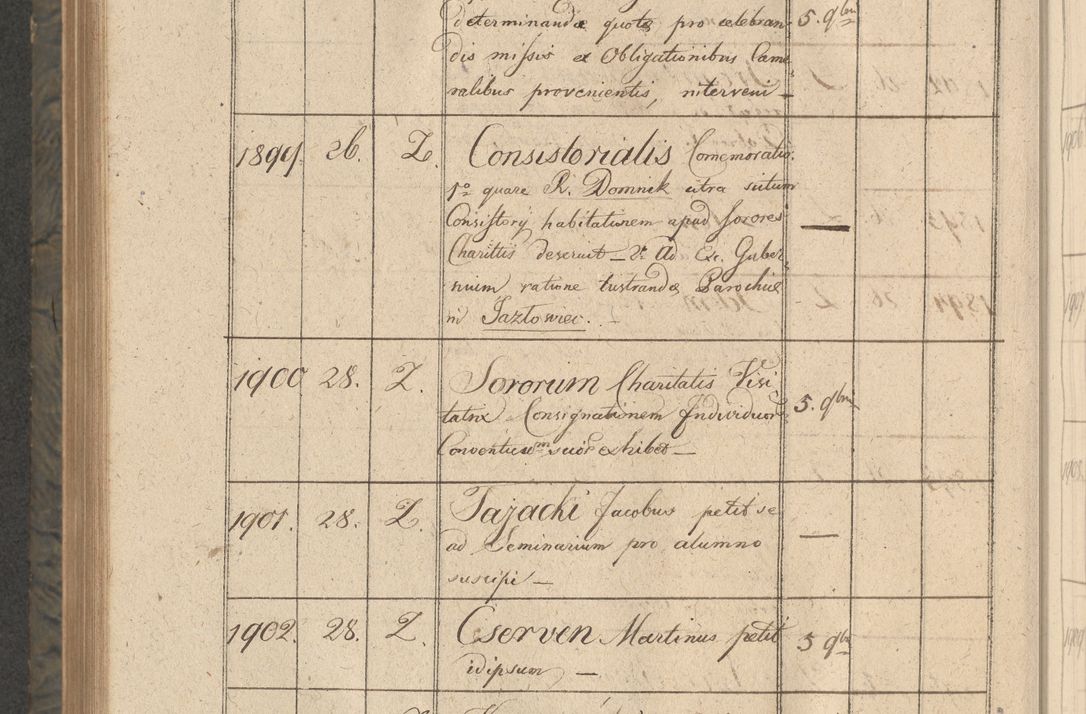 determinandæ quotæ pro celebran- 5. 9bris
dis missis ex Obligationibus Came-
ralibus provenientis, intervenit —
1899. 26. Z. Consistorialis Comemoratio.
1o quare R. Domnik citra scitum
Consistorij habitationem apud Sorores —
Charittis deseruit — 2o Ad Exc. Guber-
nium ratione lustrandæ Parochiæ
in Jazłowiec. —
1900 28. Z. Sororum Charitatis Visi-
tatrix Consignationem Individuor 5. 9bris
Conventuum suor exhibet —
1901. 28. Z. Jazachi Jacobus petit se
ad Seminarium pro alumno —
suscipi —
1902. 28. Z. Cserven Martinus petit 5 9bris
idipsum —